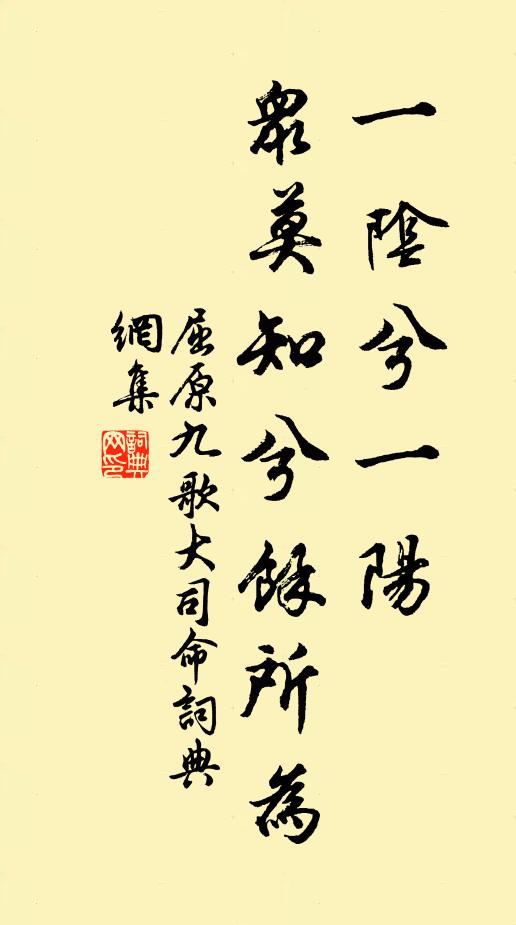 一陰兮一陽
眾莫知兮餘所為
屈原九歌大司命詞典
網集
詞典
网印